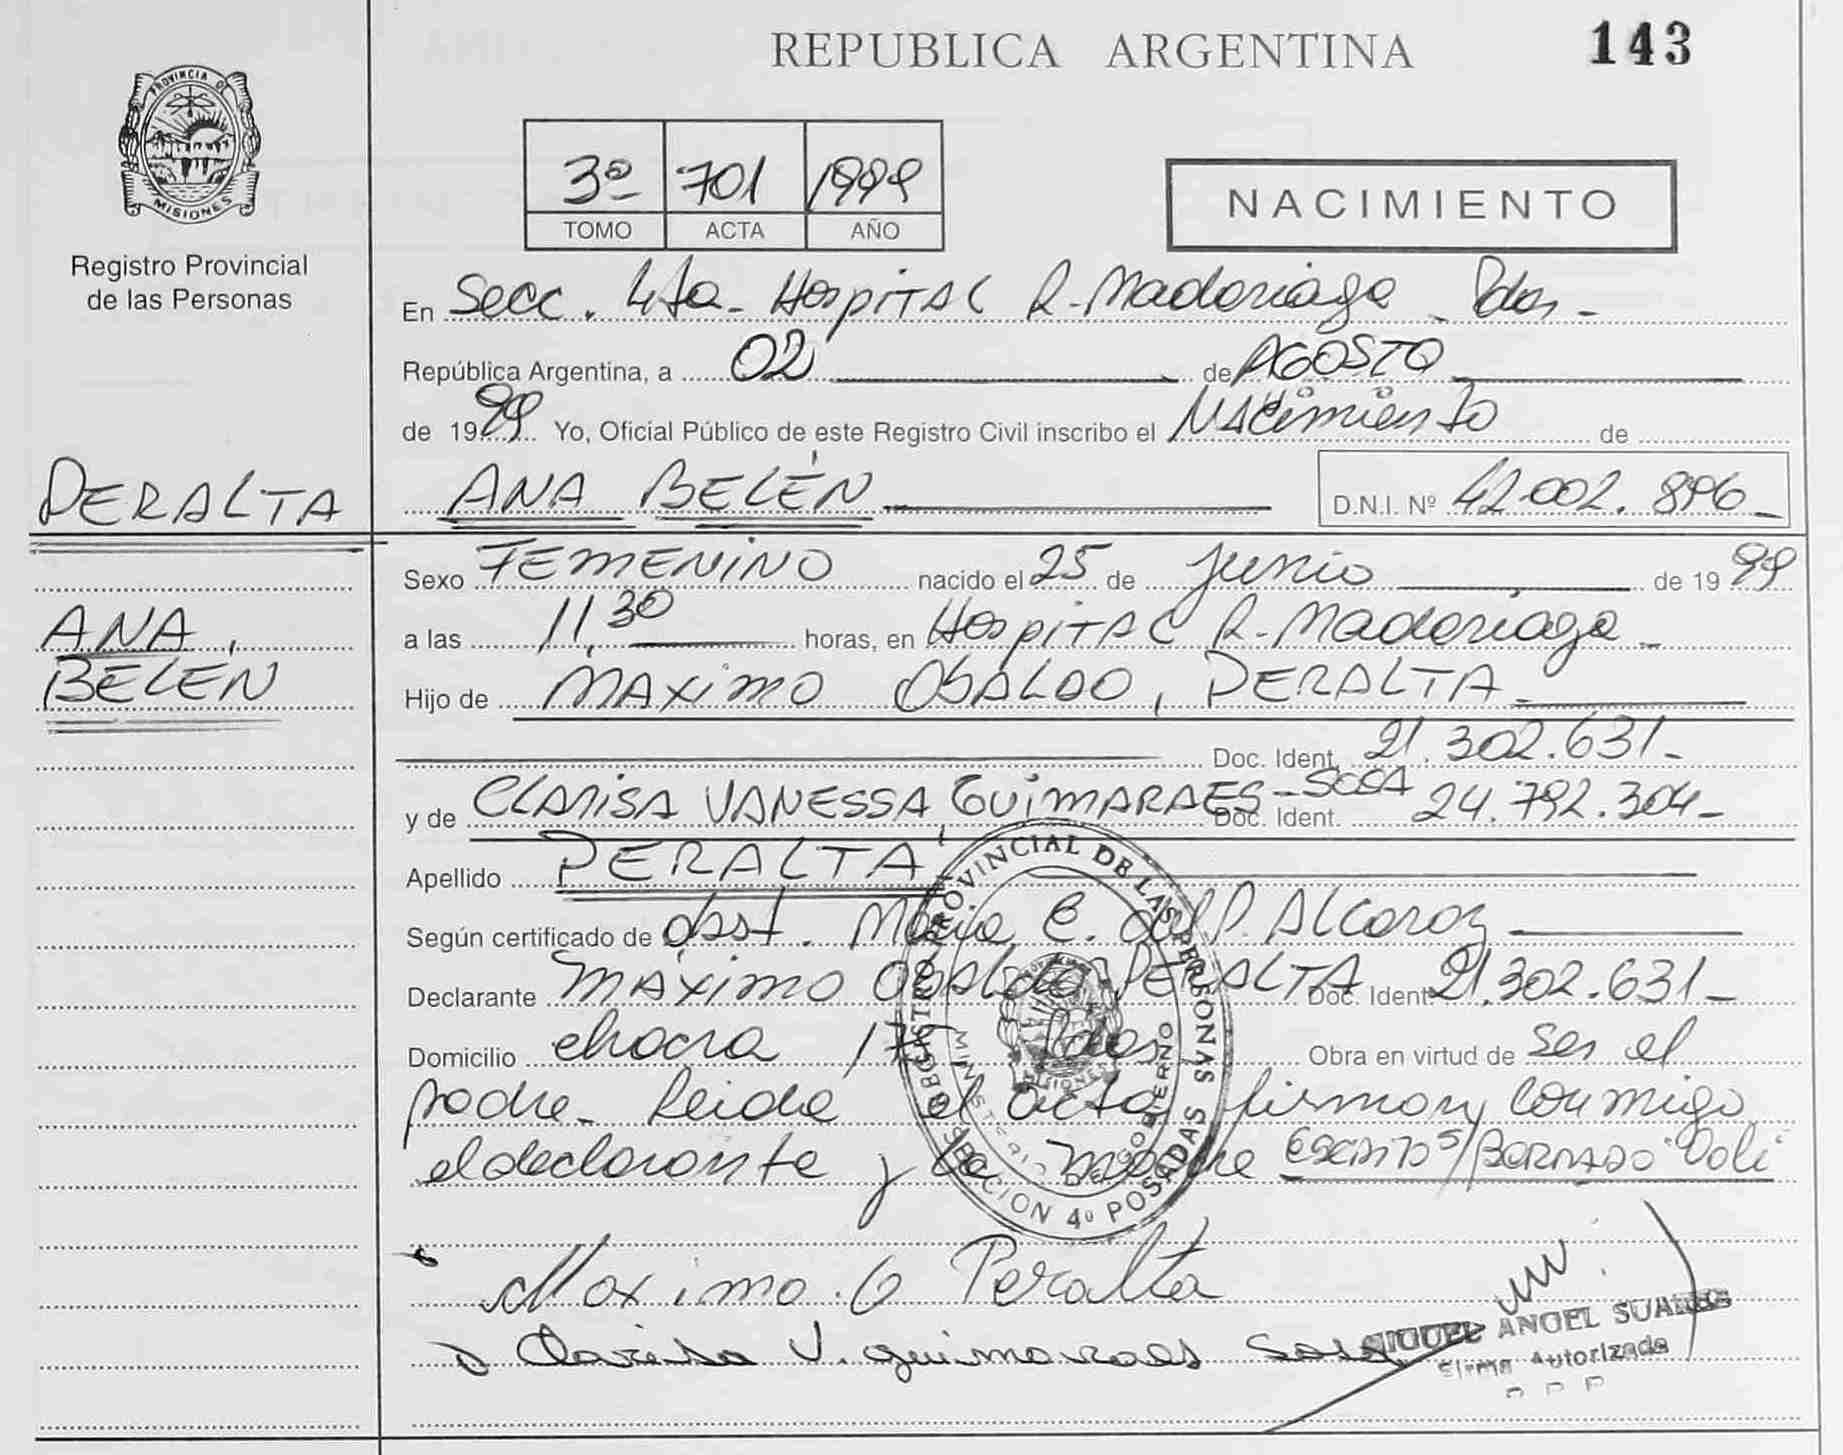 REPUBLICA ARGENTINA
143
PROVINCIA DE
MISIONES
Registro Provincial
de las Personas
3º 701 1999
TOMO ACTA AÑO
NACIMIENTO
En Secc. 4ta - Hospital R. Madariaga - Pdas -
República Argentina, a 02 de AGOSTO
de 1999 Yo, Oficial Público de este Registro Civil inscribo el Nacimiento de
PERALTA
ANA BELÉN D.N.I. Nº 42.002.896 -
Sexo FEMENINO nacido el 25 de Junio de 1999
ANA
BELEN
a las 11,30 horas, en Hospital R. Madariaga -
Hijo de MÁXIMO OSALDO, PERALTA -
Doc. Ident. 21.302.631 -
y de CLARISA VANESSA, GUIMARAES - SOSA Doc. Ident. 24.792.304 -
Apellido PERALTA
Según certificado de Obst. María E. del P. Alcaraz
Declarante MÁXIMO OSALDO PERALTA Doc. Ident 21.302.631 -
Domicilio chacra Pdas Obra en virtud de ser el
padre - Leída el acta, firman conmigo
el declarante y la madre
REGISTRO PROVINCIAL DE LAS PERSONAS
MINISTERIO DE GOBIERNO
MISIONES
SECCION 4º POSADAS
Maximo O Peralta
Clarisa V. guimaraes Sosa
MIGUEL ANGEL SUAREZ
Firma Autorizada